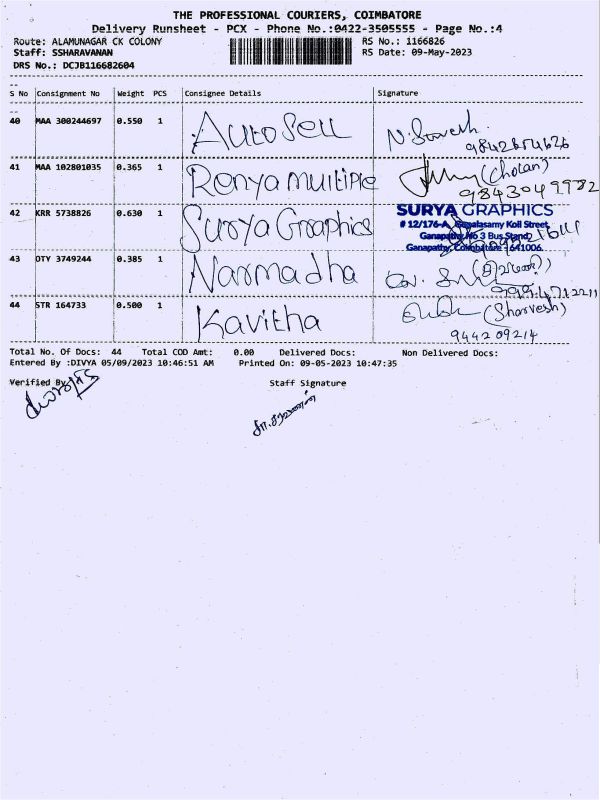 THE PROFESSIONAL COURIERS, COIMBATORE
Delivery Runsheet - PCX - Phone No.:0422-3505555 - Page No.:4
Route: ALAMUNAGAR CK COLONY RS No.: 1166826
Staff: SSHARAVANAN RS Date: 09-May-2023
DRS No.: DCJB116682604
S No Consignment No Weight PCS Consignee Details Signature
40 MAA 300244697 0.550 1 Auto Sell
41 MAA 102801035 0.365 1 Renya Multiple (Cholan)
9843049982
42 KRR 5738826 0.630 1 Surya Graphics SURYA GRAPHICS
# 12/176-A, Street,
Ganapathy No 3 Bus Stand,
Ganapathy, Coimbatore - 641006.
43 OTY 3749244 0.385 1 Narmadha
44 STR 164733 0.500 1 Kavitha (Sharvesh)
944209214
Total No. Of Docs: 44 Total COD Amt: 0.00 Delivered Docs: Non Delivered Docs:
Entered By :DIVYA 05/09/2023 10:46:51 AM Printed On: 09-05-2023 10:47:35
Verified By Staff Signature